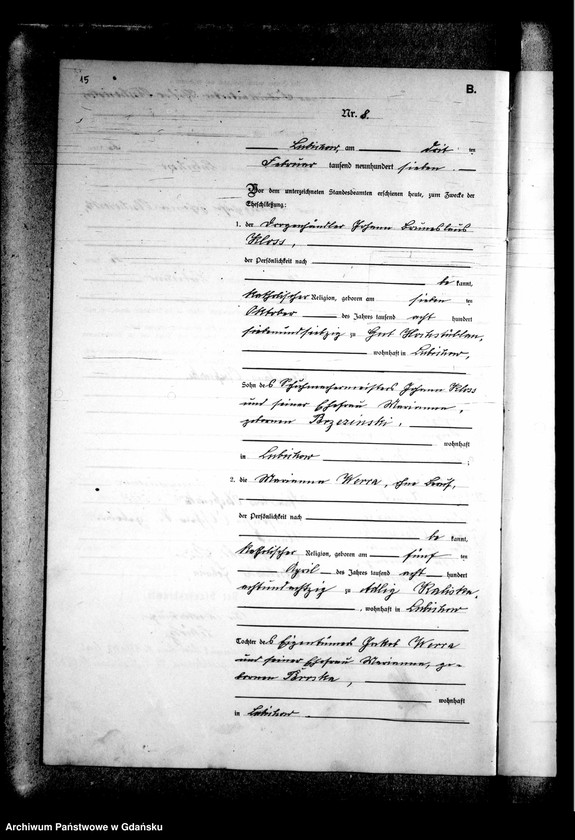 15
B.
Nr. 8.
Lubichow, am drit ten
Februar tausend neunhundert sieben.
Vor dem unterzeichneten Standesbeamten erschienen heute, zum Zwecke der
Eheschließung:
1. der Johann
Kloss,
der Persönlichkeit nach
be kannt,
katholischer Religion, geboren am sieben ten
Oktober des Jahres tausend acht hundert
siebenundsiebzig zu Gut Hochstüblau,
wohnhaft in Lubichow,
Sohn des Schuhmachermeisters Johann Kloss
und seiner Ehefrau Marianna,
geborenen Brzezinski,
wohnhaft
in Lubichow ;
2. die Marianna Werra, ohne Beruf,
der Persönlichkeit nach
be kannt,
katholischer Religion, geboren am fünf ten
April des Jahres tausend acht hundert
achtundachtzig zu Adlig Kaliska,
, wohnhaft in Lubichow
Tochter des Eigentümers Jakob Werra
und seiner Ehefrau Marianna, ge-
borenen
wohnhaft
in Lubichow.
Archiwum Państwowe w Gdańsku